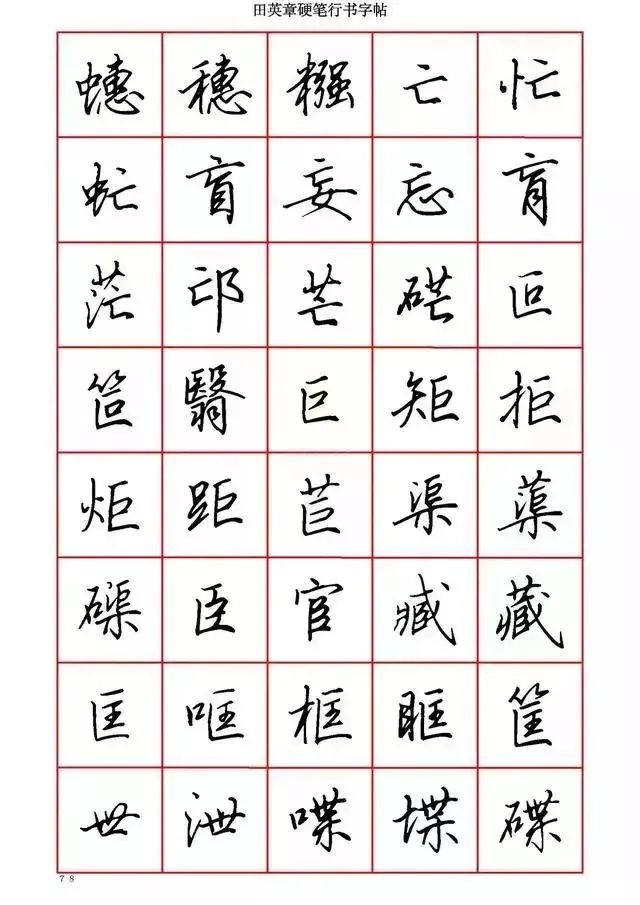 田英章硬笔行书字帖
蟪穗糨亡忙
虻盲妄忘肓
茫邙芒硭叵
笸翳巨矩拒
炬距苣渠蕖
磲臣宦臧藏
匡哐框眶筐
世泄喋堞碟
78